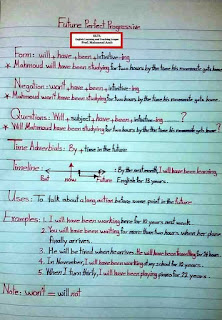 Future Perfect Progressive
ELTL
English Learning and Teaching Lounge
Prof. Mahmoud Atoh
Form: will + have + been + infinitive-ing
* Mahmoud will have been studying for two hours by the time his roommate gets home.
Negation: won't + have + been + infinitive-ing
* Mahmoud won't have been studying for two hours by the time his roommate gets home.
Questions: Will + subject + have + been + infinitive-ing ?
* Will Mahmoud have been studying for two hours by the time his roommate gets home?
Time Adverbials: By + time in the future
Timeline: : By the next month, I will have been learning
Past now Future English for 15 years.
Uses: To talk about a long action before some point in the future
Examples: 1. I will have been working here for 10 years next week.
2. You will have been waiting for more than two hours when her plane
finally arrives.
3. He will be tired when he arrives. He will have been travelling for 24 hours.
4. In November, I will have been working at my school for 10 years.
5. When I turn thirty, I will have been playing piano for 22 years.
Note: won't = will not